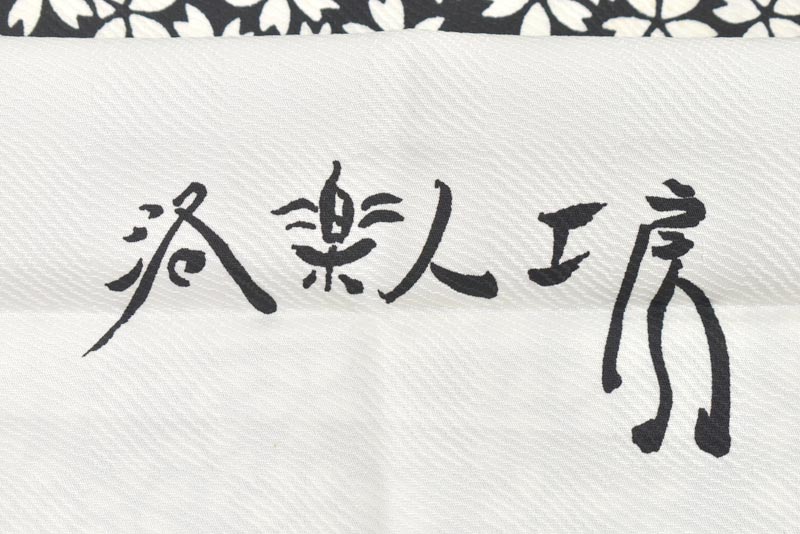 洛楽人工房